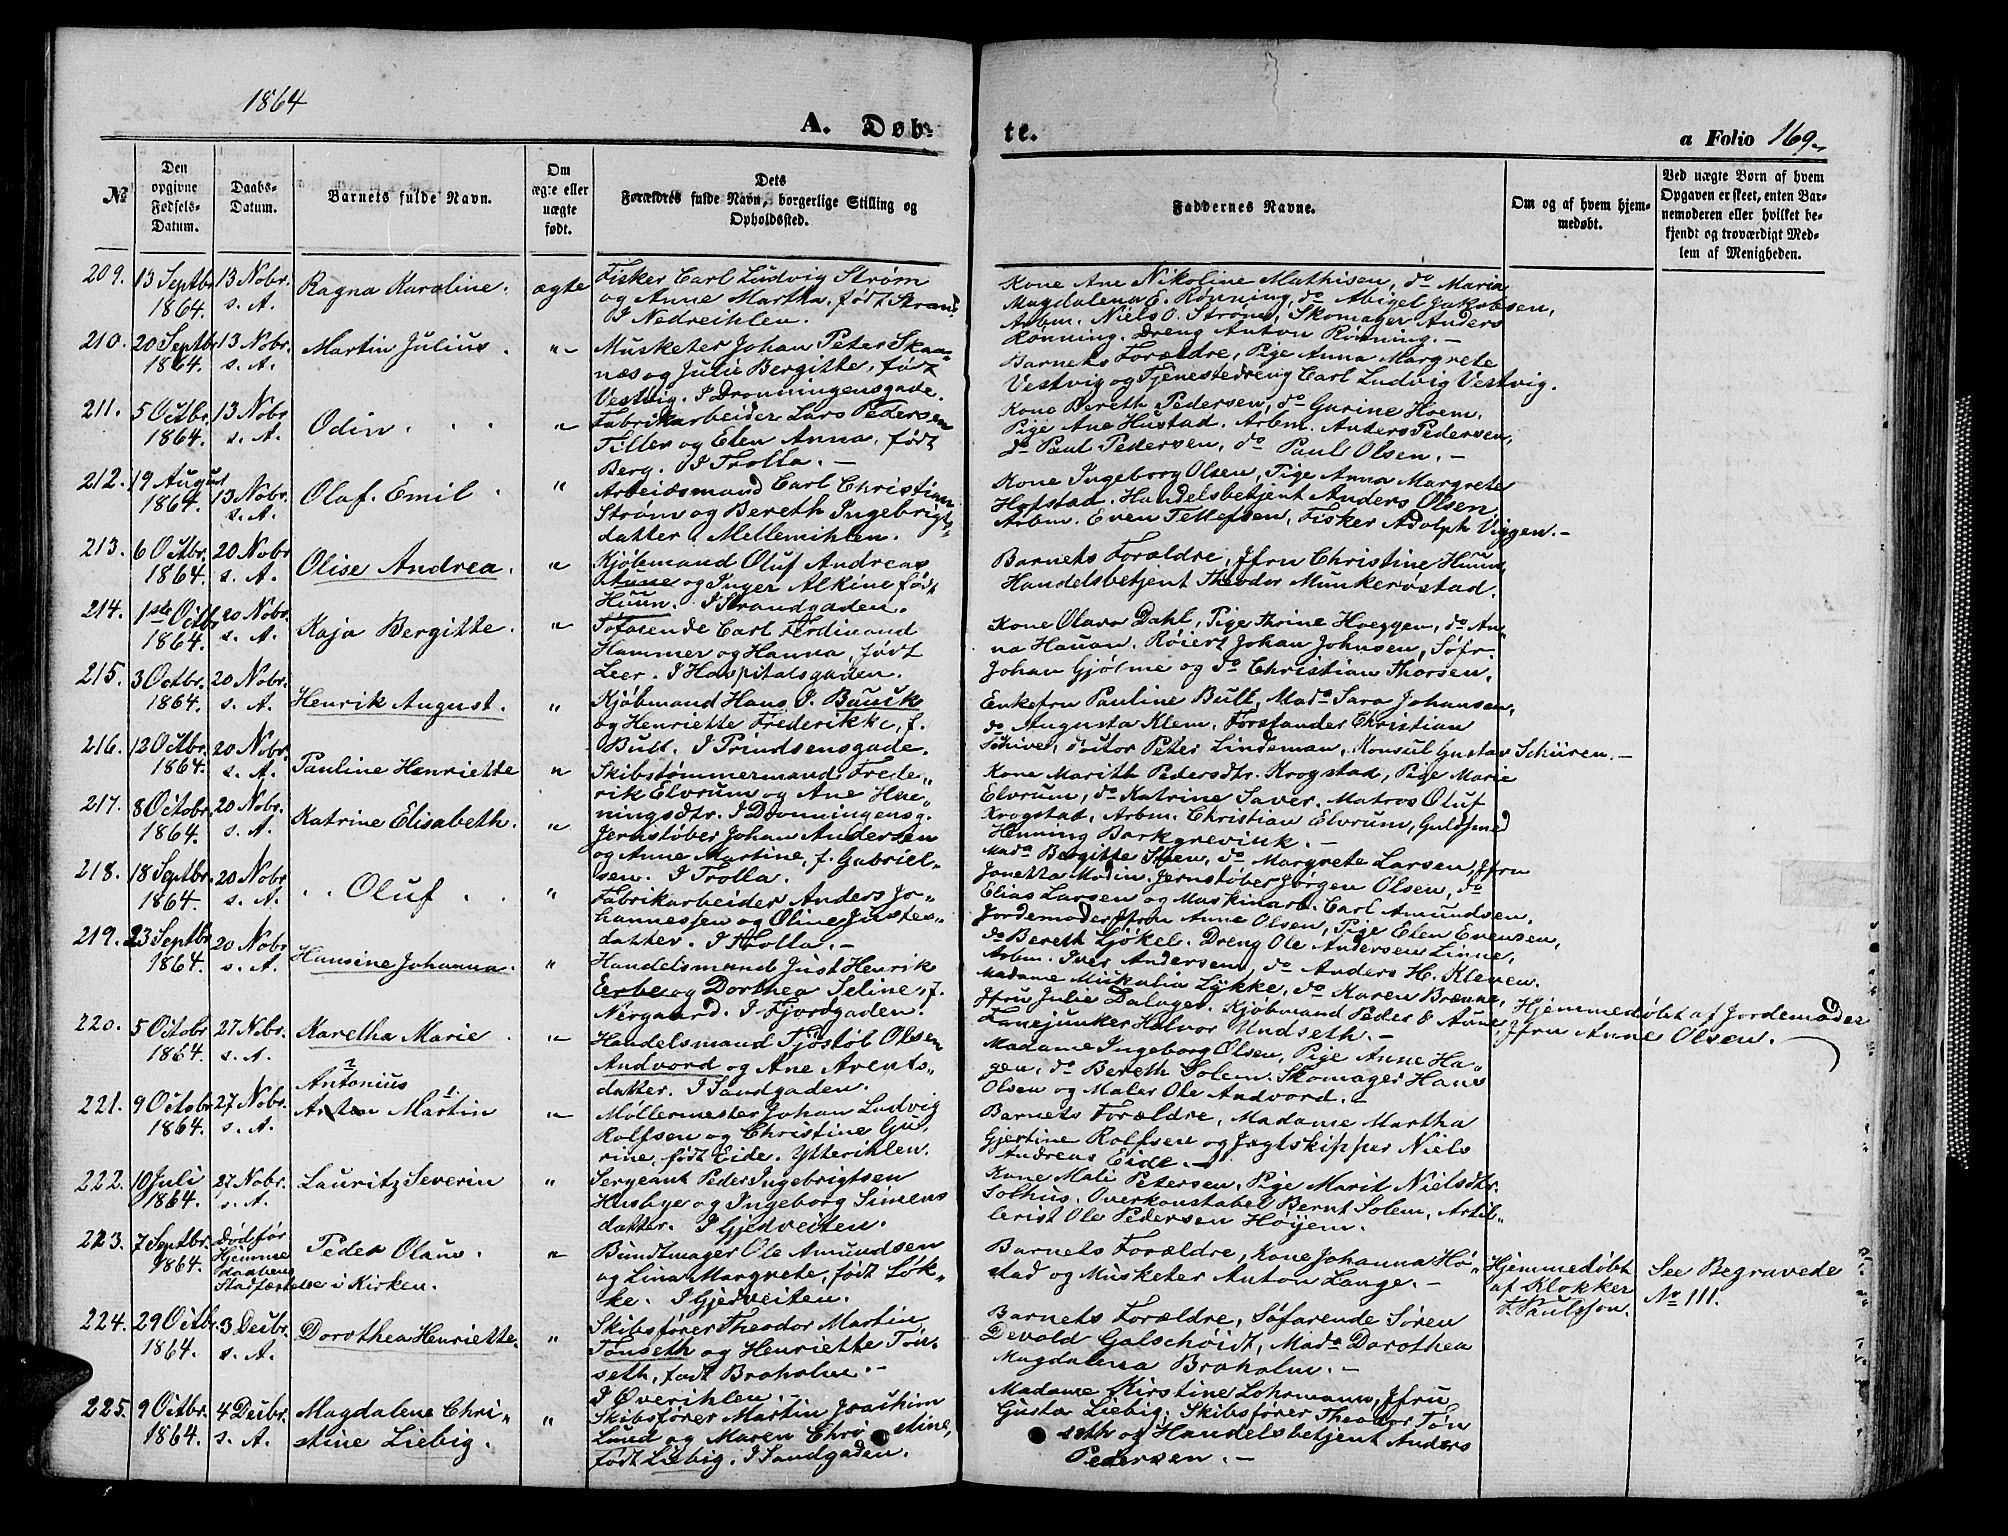 1864
A. Døb-
te.
a Folio 169.
№
Den opgivne Fødsels-Datum.
Daabs-Datum.
Barnets fulde Navn.
Om ægte eller uægte født.
Dets Forældres fulde Navn, borgerlige Stilling og Opholdssted.
Faddernes Navne.
Om og af hvem hjemmedøbt.
Ved uægte Børn af hvem Opgaven er skeet, enten Barnemoderen eller hvilket bekjendt og troværdigt Medlem af Menigheden.
209. 13 Septbr 1864. 13 Nobr. s. A. Ragna Karoline. ægte
Fisker Carl Ludvig Strøm
og Anne Martha, født Strand.
I Nedreihlen.
Kone Ane Nikoline Mathisen, do Maria
Magdalena E. Rønning, do Abigel Jakobsen,
Arbm. Niels O. Strøm, Skomager Anders
Rønning. Dreng Anton Rønning. -
210. 20 Septbr 1864. 13 Nobr. s. A. Martin Julius. "
Musketer Johan Peter Skaa-
næs og Julie Bergitte, født
Vestvig. I Dronningensgade.
Barnets Forældre, Pige Anna Margrete
Vestvig og Tjenestedreng Carl Ludvig Vestvig.
211. 5 Octbr. 1864. 13 Nobr s. A. Odin. "
Fabrikarbeider Lars Pedersen
Tiller og Elen Anna, født
Berg. I Trolla. -
Kone Bereth Pedersen, do Gurine Hoem.
Pige Ane Hustad. Arbm. Anders Pedersen,
do Paul Pedersen, do Paul Olsen. -
212. 19 August 1864. 13 Nobr. s. A. Olaf Emil. "
Arbeidsmand Carl Christian
Strøm og Bereth Ingebrigt-
datter i Mellemihlen.
Kone Ingeborg Olsen, Pige Anna Margrete
Hofstad. Handelsbetjent Anders Olsen
Arbm. Even Tellefsen, Fisker Adolph Viggen. -
213. 6 Octbr. 1864. 20 Nobr s. A. Olise Andrea. "
Kjøbmand Oluf Andreas
Aune og Inger Alkine født
Huun. I Strandgaden.
Barnets Forældre, Jfru Christine Huun,
Handelsbetjent Theodor Munkerøstad.
214. 1ste Octb 1864. 20 Nobr. s. A. Kaja Bergitte. "
Søfarende Carl Ferdinand
Hammer og Hanna, født
Leer. I Hospitalsgaden.
Kone Olava Dahl, Pige Thrine Hoeggen, do An-
na Hauan. Røiert Johan Johnsen, Søfr.
Johan Gjølme og do Christian Thorsen.
215. 3 Octbr. 1864. 20 Nobr. s. A. Henrik August. "
Kjøbmand Hans J. Bauck
og Henriette Frederikke, f.
Bull. I Prindsensgade.
Enkefru Pauline Bull, Mado Sara Johansen,
do Augusta Klem, Forstander Christian
Schive, Doctor Peter Lindeman, Konsul Gustav Schüren. -
216. 12 Octbr. 1864. 20 Nobr. s. A. Pauline Henriette "
Skibstømmermand Frede-
rik Elvrum og Ane Hen-
ningsdtr. I Dronningensg.
Kone Marith Pedersdtr. Krogstad, Pige Marie
Elvrum, do Katrine Saver. Matros Oluf
Krogstad, Arbm. Christian Elvrum, Guldsmed
Henning Barkgrevink. -
217. 8 Octobr. 1864. 20 Nobr. s. A. Katrine Elisabeth. "
Jernstøber Johan Andersen
og Anne Martine, f. Gabriel-
sen. I Trolla.
Mada Bergitte Steen, do Margrete Larsen, Jfru
Jonetta Modin. Jernstøber Jørgen Olsen, do
Elias Larsen og Maskinarb. Carl Amundsen.
218. 18 Septbr. 1864. 20 Nobr s. A. Oluf. "
Fabrikarbeider Anders Jo-
hannessen og Oline Justes-
datter. I Trolla. -
Jordemoder Jfru Anne Olsen, Pige Elen Evensen,
do Bereth Ljøkel. Dreng Ole Andersen Linne,
Arbm. Iver Andersen, do Anders H. Kleven.
219. 23 Septbr 1864. 20 Nobr s. A. Hansine Johanna. "
Handelsmand Just Henrik
Erbe og Dorthea Seline, f.
Nergaard. I Fjordgaden.
Madame Mikalia Lykke, do Karen Brænne,
Jfru Julie Dalager. Kjøbmand Peder O Aune,
Fanejunker Halvor Undseth. -
Hjemmedøbt af Jordemoder
Jfru Anne Olsen. -
220. 5 Octobr 1864. 27 Nobr. s. A. Karetha Marie. "
Handelsmand Tjøstol Olsen
Andvord og Ane Arents-
datter. I Sandgaden.
Madame Ingeborg Olsen, Pige Anne Ha-
gen, do Bereth Solem. Skomager Hans
Olsen og Maler Ole Andvord. -
221. 9 Octobr 1864. 27 Nobr. s. A. Antonius
Anton Martin "
Møllermester Johan Ludvig
Rolfsen og Christine Gu-
rine, født Eide. Ytterihlen.
Barnets Forældre, Madame Martha
Gjertine Rolfsen og Jagtskipper Niels
Andreas Eide. -
222. 10 Juli 1864. 27 Nobr. s. A. Lauritz Severin "
Sergeant Peder Ingebrigtsen
Husbye og Ingeborg Simens
datter. I Gjedveiten.
Kone Mali Petersen, Pige Marit Nielsdtr.
Solhus. Overkonstabel Bernt Solem, Artil-
lerist Ole Pedersen Høyem.
223. 7 Septbr. 1864. Dødfør Hjemme daabens Stadfæstelse i Kirken. Peder Olaus. "
Bundtmager Ole Amundsen
og Lina Margrete, født Løk-
ke. I Gjedveiten.
Barnets Forældre, Kone Johanna Hø-
stad og Musketer Anton Lange. -
Hjemmedøbt
af Klokker
T. Paulsson.
See Begravede
No 111.
224. 29 Octbr. 1864. 3 Decbr. s. A. Dorothea Henriette. "
Skibsfører Theodor Martin
Tønseth og Henriette Tøn-
seth, født Broholm. -
I Øverihlen. -
Barnets Forældre, Søfarende Søren
Devold Galschøidt, Mada Dorothea
Magdalena Broholm. -
225. 9 Octbr. 1864. 4 Decbr. s. A. Magdalene Chri-
stine Liebig. "
Skibsfører Martin Joachim
Lund og Maren Chri stine,
født Liebig. I Sandgaden.
Madame Kirstine Lohrmann, Jfru
Gusta Liebig. Skibsfører Theodor Tøn
seth og Handelsbetjent Anders
Pedersen. -